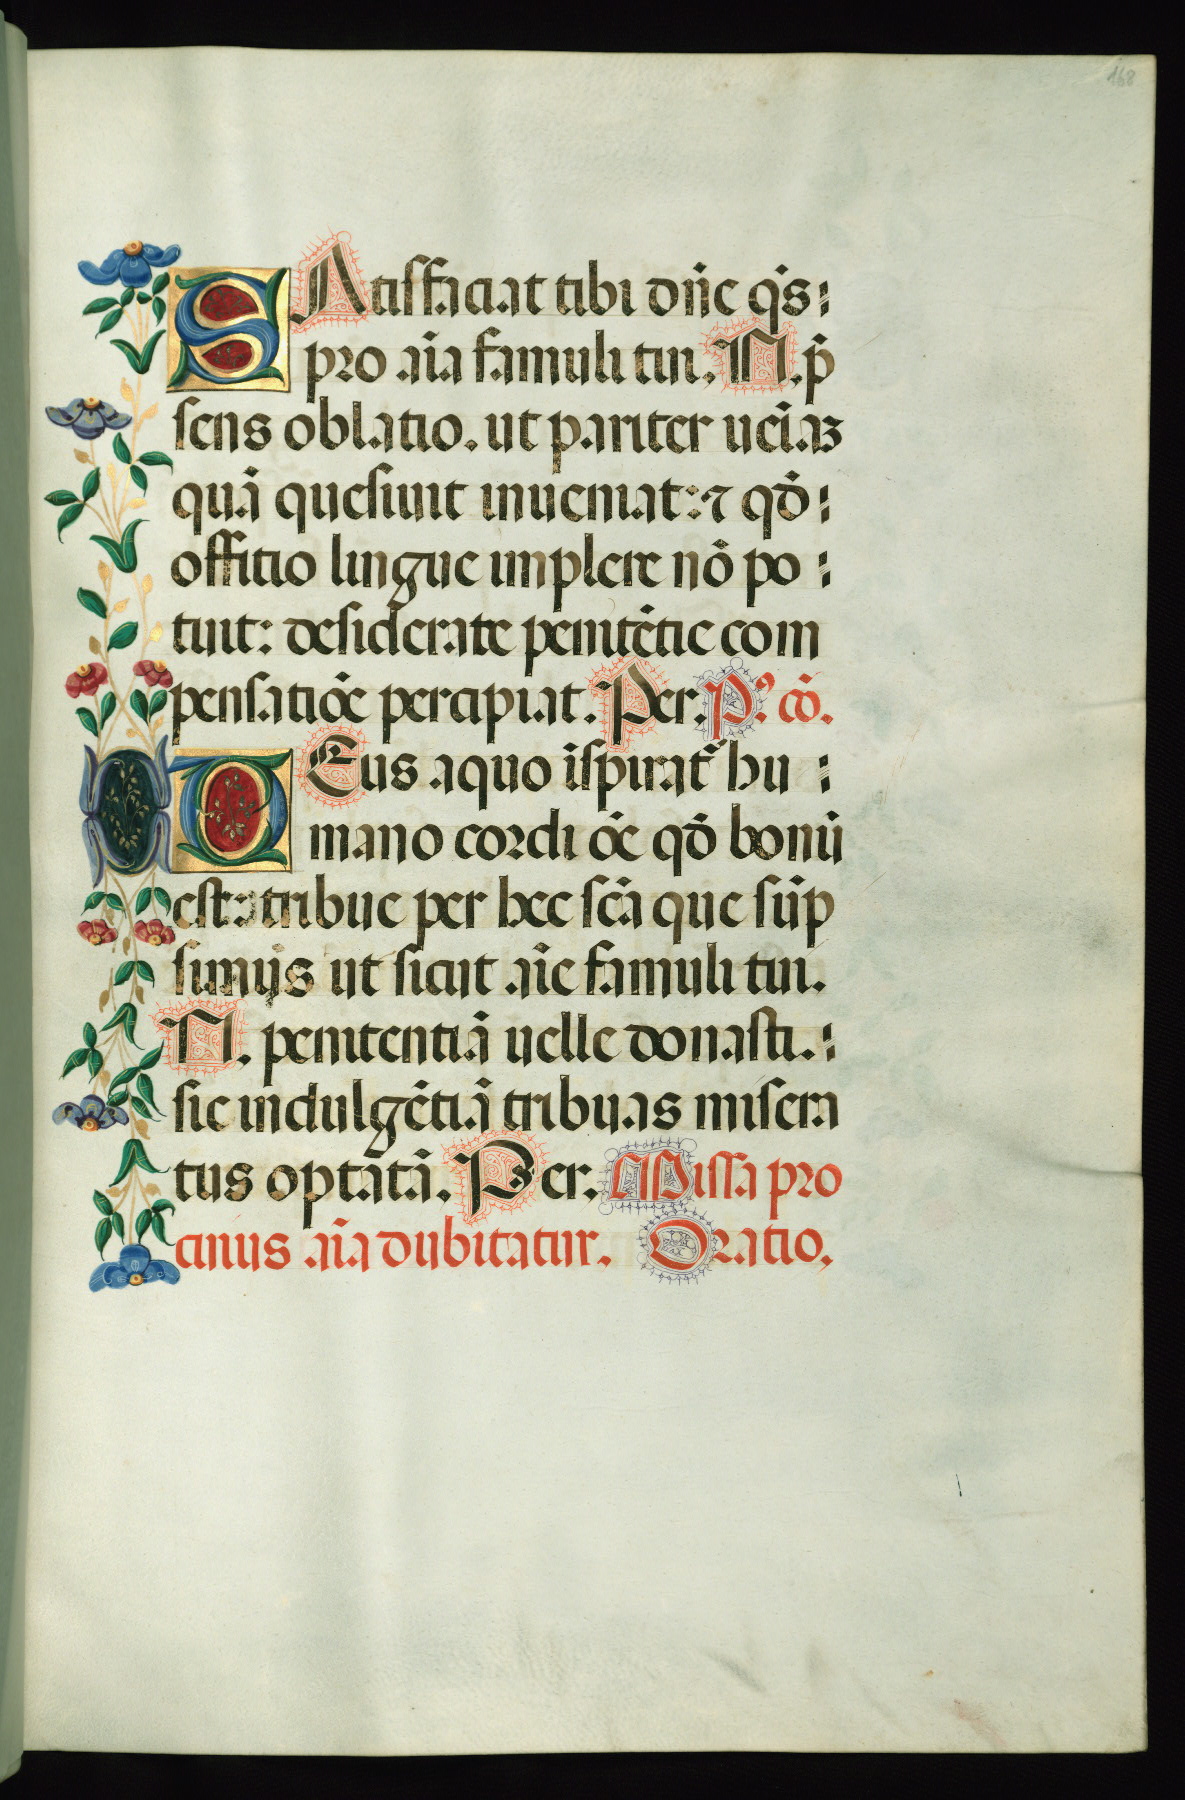 168
SAtisfaciat tibi dñe q̃s:
pro aĩa famuli tui. N. p̄
sens oblatio. ut pariter ueĩaʒ
quã quesiuit inueniat: ⁊ qð:
offitio lingue implere nõ po:
tuit: desiderate penitẽtie com
pensatiõe percipiat. Per. Pꝰ. cõ.
DEus a quo ĩspirat᷑ hu:
mano cordi õe qð bonũ
est: tribue per hec sc̃a que sũp
simijs ut sicut aĩe famuli tui.
N. penitentiã uelle donasti.:
sic indulgẽtiã tribuas misera
tus optatã. Per. Missa pro
cuius aĩa dubitatur. Oratio.